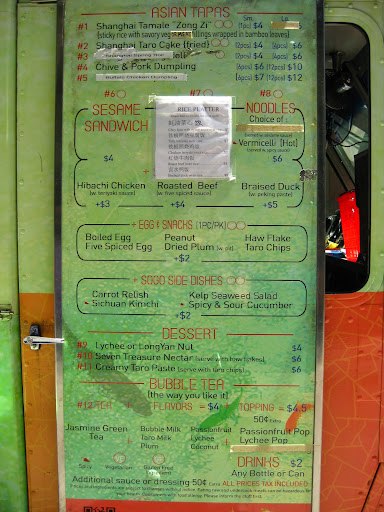 ASIAN TAPAS
Sm. LA
#1 Shanghai Tamale "Zong Zi" (1pc) $4
(sticky rice with savory fillings wrapped in bamboo leaves)
#2 Shanghai Taro Cake (fried) (2pcs) $4 (4pcs) $6
#3 $4 $6
#4 Chive & Pork Dumpling (6pcs) $6 (12pcs) $10
#5 Buffalo Chicken Dumpling (6pcs) $7 (12pcs) $12
#6 #7 #8
SESAME SANDWICH
RICE PLATTER
NOODLES
Choice of:
Vermicelli [Hot]
(served w/ spicy sauce)
$4 $6
Hibachi Chicken Roasted Beef Braised Duck
(w/ teriyaki sauce) (w/ five spiced sauce) (w/ peking paste)
+$3 +$4 +$5
EGG & SNACKS (1PC/PK)
Boiled Egg Peanut Haw Flake
Five Spiced Egg Dried Plum (w/ pit) Taro Chips
+$2
SOGO SIDE DISHES
Carrot Relish Kelp Seaweed Salad
Sichuan Kimchi Spicy & Sour Cucumber
+$2
DESSERT
#9 Lychee or LongYan Nut $4
#10 Seven Treasure Nectar (serve with haw flakes) $6
#11 Creamy Taro Paste (serve with taro chips) $6
BUBBLE TEA
(the way you like it)
#12 TEA + FLAVORS = $4 TOPPING = $4.5
50¢ Extra
Jasmine Green Tea
Bubble Milk
Taro Milk
Plum
Passionfruit
Lychee
Coconut
Passionfruit Pop
Lychee Pop
DRINKS $2
Any Bottle or Can
Spicy Vegetarian Gluten Free
Additional sauce or dressing 50¢ Extra ALL PRICES TAX INCLUDED